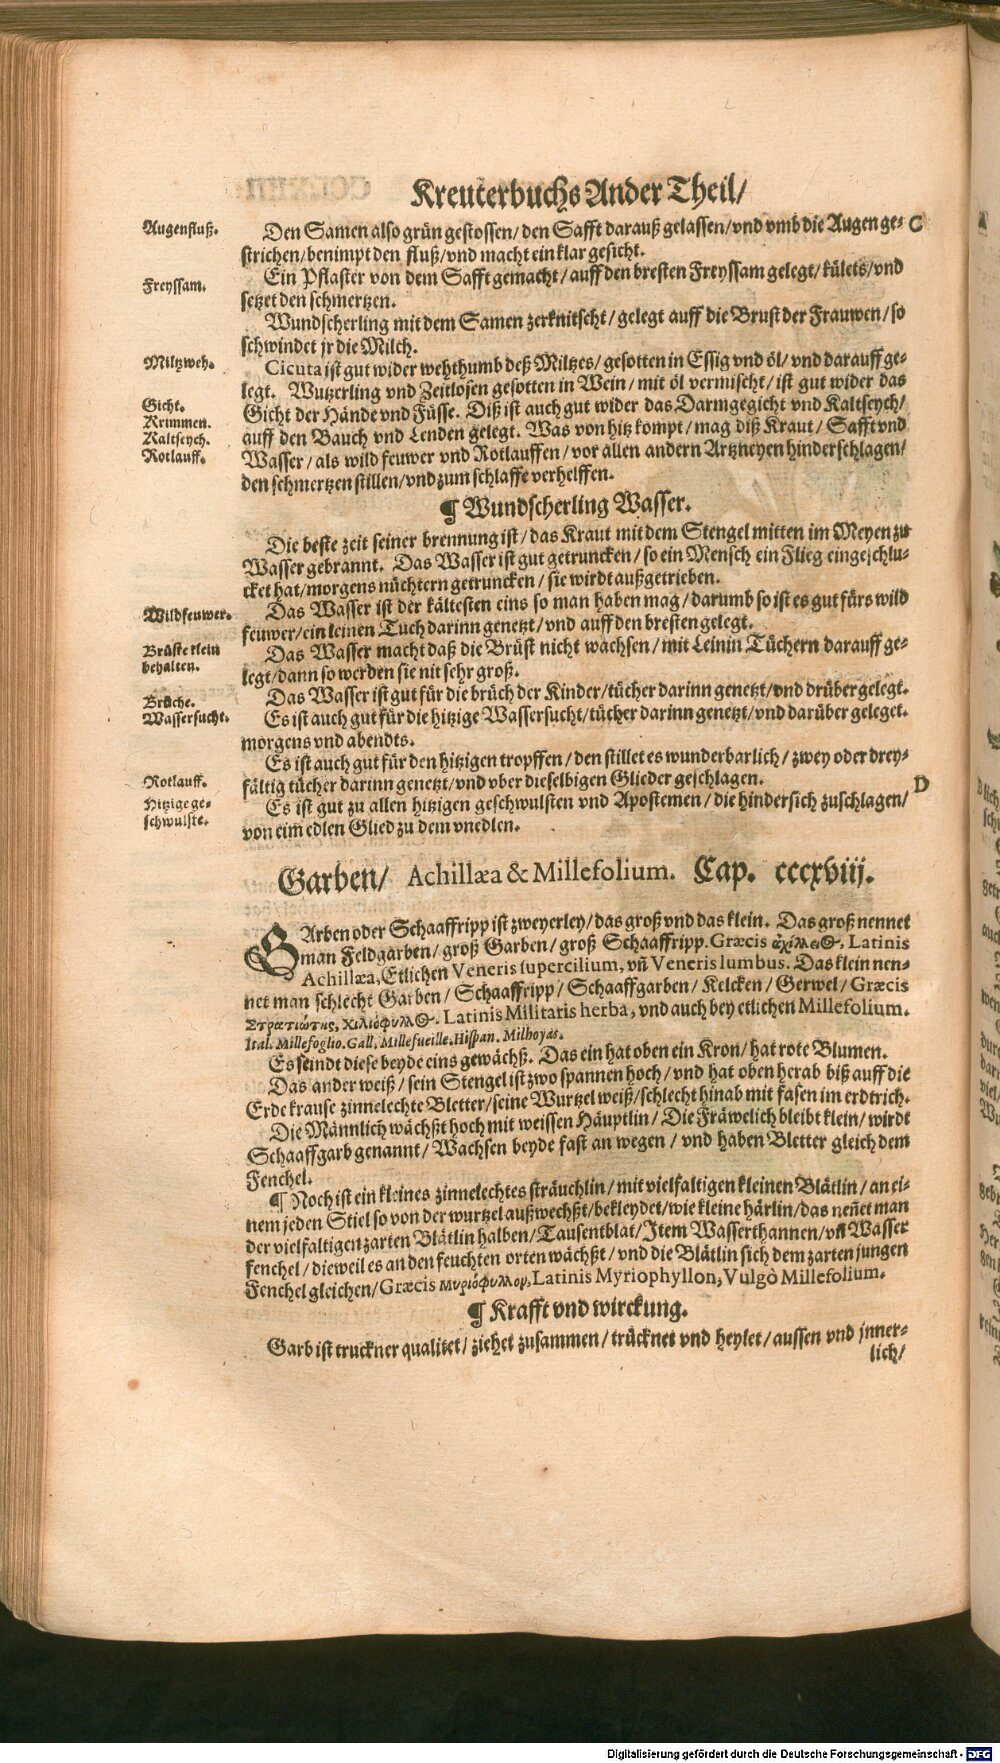 Kreuterbuchs Ander Theil/
Augenfluß.
Den Samen also grün gestossen/den Safft darauß gelassen/vnd vmb die Augen ge-
C
strichen/benimpt den fluß/vnd macht ein klar gesicht.
Freyssam.
Ein Pflaster von dem Safft gemacht/auff den bresten Freyssam gelegt/külets/vnd
setzet den schmertzen.
Wundscherling mit dem Samen zerknitscht/gelegt auff die Brust der Frauwen/so
schwindet jr die Milch.
Miltzweh.
Cicuta ist gut wider wehthumb deß Miltzes/gesotten in Essig vnd öl/vnd darauff ge-
legt. Wutzerling vnd Zeitlosen gesotten in Wein/mit öl vermischt/ist gut wider das
Gicht.
Gicht der Hände vnd Füsse. Diß ist auch gut wider das Darmgegicht vnd Kaltseych/
Krimmen.
Kaltseych.
auff den Bauch vnd Lenden gelegt. Was von hitz kompt/mag diß Kraut/Safft vnd
Rotlauff.
Wasser/als wild feuwer vnd Rotlauffen/vor allen andern Artzneyen hinderschlagen/
den schmertzen stillen/vnd zum schlaffe verhelffen.
¶ Wundscherling Wasser.
Die beste zeit seiner brennung ist/das Kraut mit dem Stengel mitten im Meyen zu
Wasser gebrannt. Das Wasser ist gut getruncken/so ein Mensch ein Flieg eingeschlu-
cket hat/morgens nüchtern getruncken/sie wirdt außgetrieben.
Wildfeuwer.
Das Wasser ist der kältesten eins so man haben mag/darumb so ist es gut fürs wild
feuwer/ein leinen Tuch darinn genetzt/vnd auff den bresten gelegt.
Brüste klein
behalten.
Das Wasser macht daß die Brüst nicht wachsen/mit Leinin Tüchern darauff ge-
legt/dann so werden sie nit sehr groß.
Brüche.
Das Wasser ist gut für die brüch der Kinder/tücher darinn genetzt/vnd drüber gelegt.
Wassersucht.
Es ist auch gut für die hitzige Wassersucht/tücher darinn genetzt/vnd darüber geleget.
morgens vnd abendts.
Es ist auch gut für den hitzigen tropffen/den stillet es wunderbarlich/zwey oder drey-
Rotlauff.
fältig tücher darinn genetzt/vnd vber dieselbigen Glieder geschlagen.
D
Hitzige ge-
schwulste.
Es ist gut zu allen hitzigen geschwulsten vnd Apostemen/die hindersich zuschlagen/
von eim edlen Glied zu dem vnedlen.
Garben/ Achillæa & Millefolium. Cap. cccxviij.
GArben oder Schaaffripp ist zweyerley/das groß vnd das klein. Das groß nennet
man Feldgarben/groß Garben/groß Schaaffripp. Græcis ἀχίλλειΘ, Latinis
Achillæa, Etlichen Veneris supercilium, vñ Veneris lumbus. Das klein nen-
net man schlecht Garben/Schaaffripp/Schaaffgarben/Kelcken/Gerwel/Græcis
Στρατιώτης, χιλιόφυλλΘ. Latinis Militaris herba, vnd auch bey etlichen Millefolium.
Ital. Millefoglio. Gall. Millefueille. Hispan. Milhoyas.
Es seindt diese beyde eins gewächß. Das ein hat oben ein Kron/hat rote Blumen.
Das ander weiß/sein Stengel ist zwo spannen hoch/vnd hat oben herab biß auff die
Erde krause zinnelechte Bletter/seine Wurtzel weiß/schlecht hinab mit fasen im erdtrich.
Die Männlich wächßt hoch mit weissen Häuptlin/Die Fräwelich bleibt klein/wirdt
Schaaffgarb genannt/Wachsen beyde fast an wegen/vnd haben Bletter gleich dem
Fenchel.
¶ Noch ist ein kleines zinnelechtes sträuchlin/mit vielfaltigen kleinen Blätlin/an ei-
nem jeden Stiel so von der wurtzel außwechßt/bekleydet/wie kleine härlin/das neñet man
der vielfaltigen zarten Blätlin halben/Tausentblat/Item Wasserthannen/vñ Wasser
fenchel/dieweil es an den feuchten orten wächßt/vnd die Blätlin sich dem zarten jungen
Fenchel gleichen/Græcis μυριόφυλλον, Latinis Myriophyllon, Vulgò Millefolium.
¶ Krafft vnd wirckung.
Garb ist truckner qualitet/ziehet zusammen/trücknet vnd heylet/aussen vnd jnner-
lich/
Digitalisierung gefördert durch die Deutsche Forschungsgemeinschaft - DFG